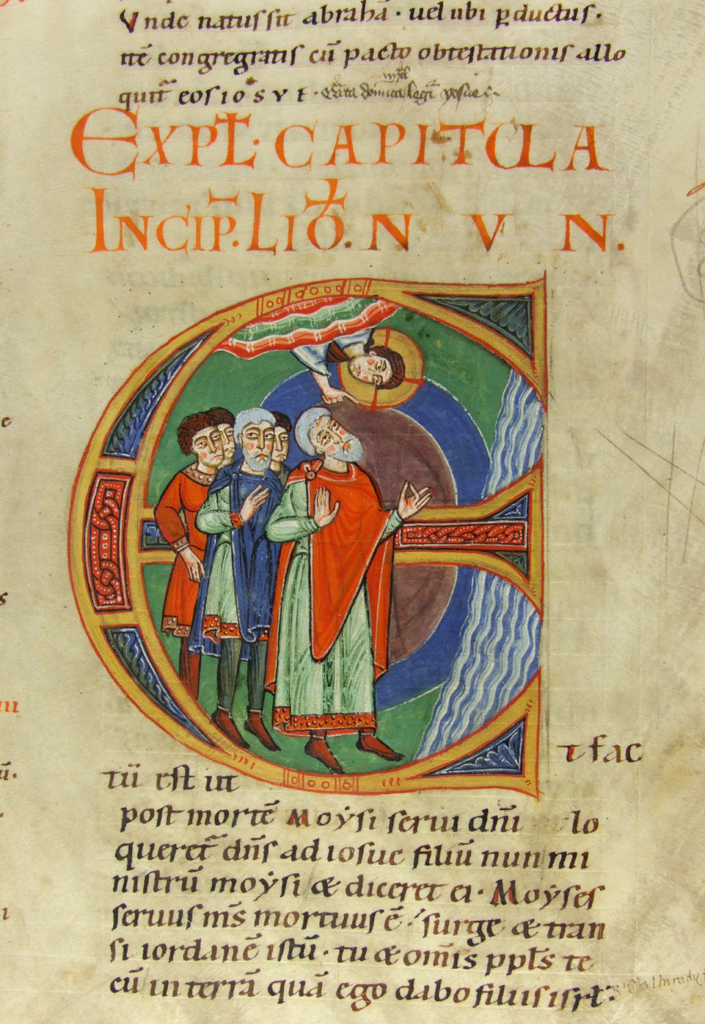 Vnde natus sit abrahā · uel ubi ꝑductus ·
itē congregatis cū pacto obtestationis allo
quit̄ eos iosve ·
EXPL̄ · CAPITULA
INCIP̄ · LIB̄ · NVN ·
Et fac
tū est ut
post mortē Moẏsi serui dn̄i lo
queret̄ dn̄s ad iosue filiū nun mi
nistrū moẏsi & diceret ei · Moẏses
seruus m̄s mortuus ē · surge & tran
si iordanē istū · tu & om̄is ppl̄s te
cū in terrā quā ego dabo filiis isrl̄ ·